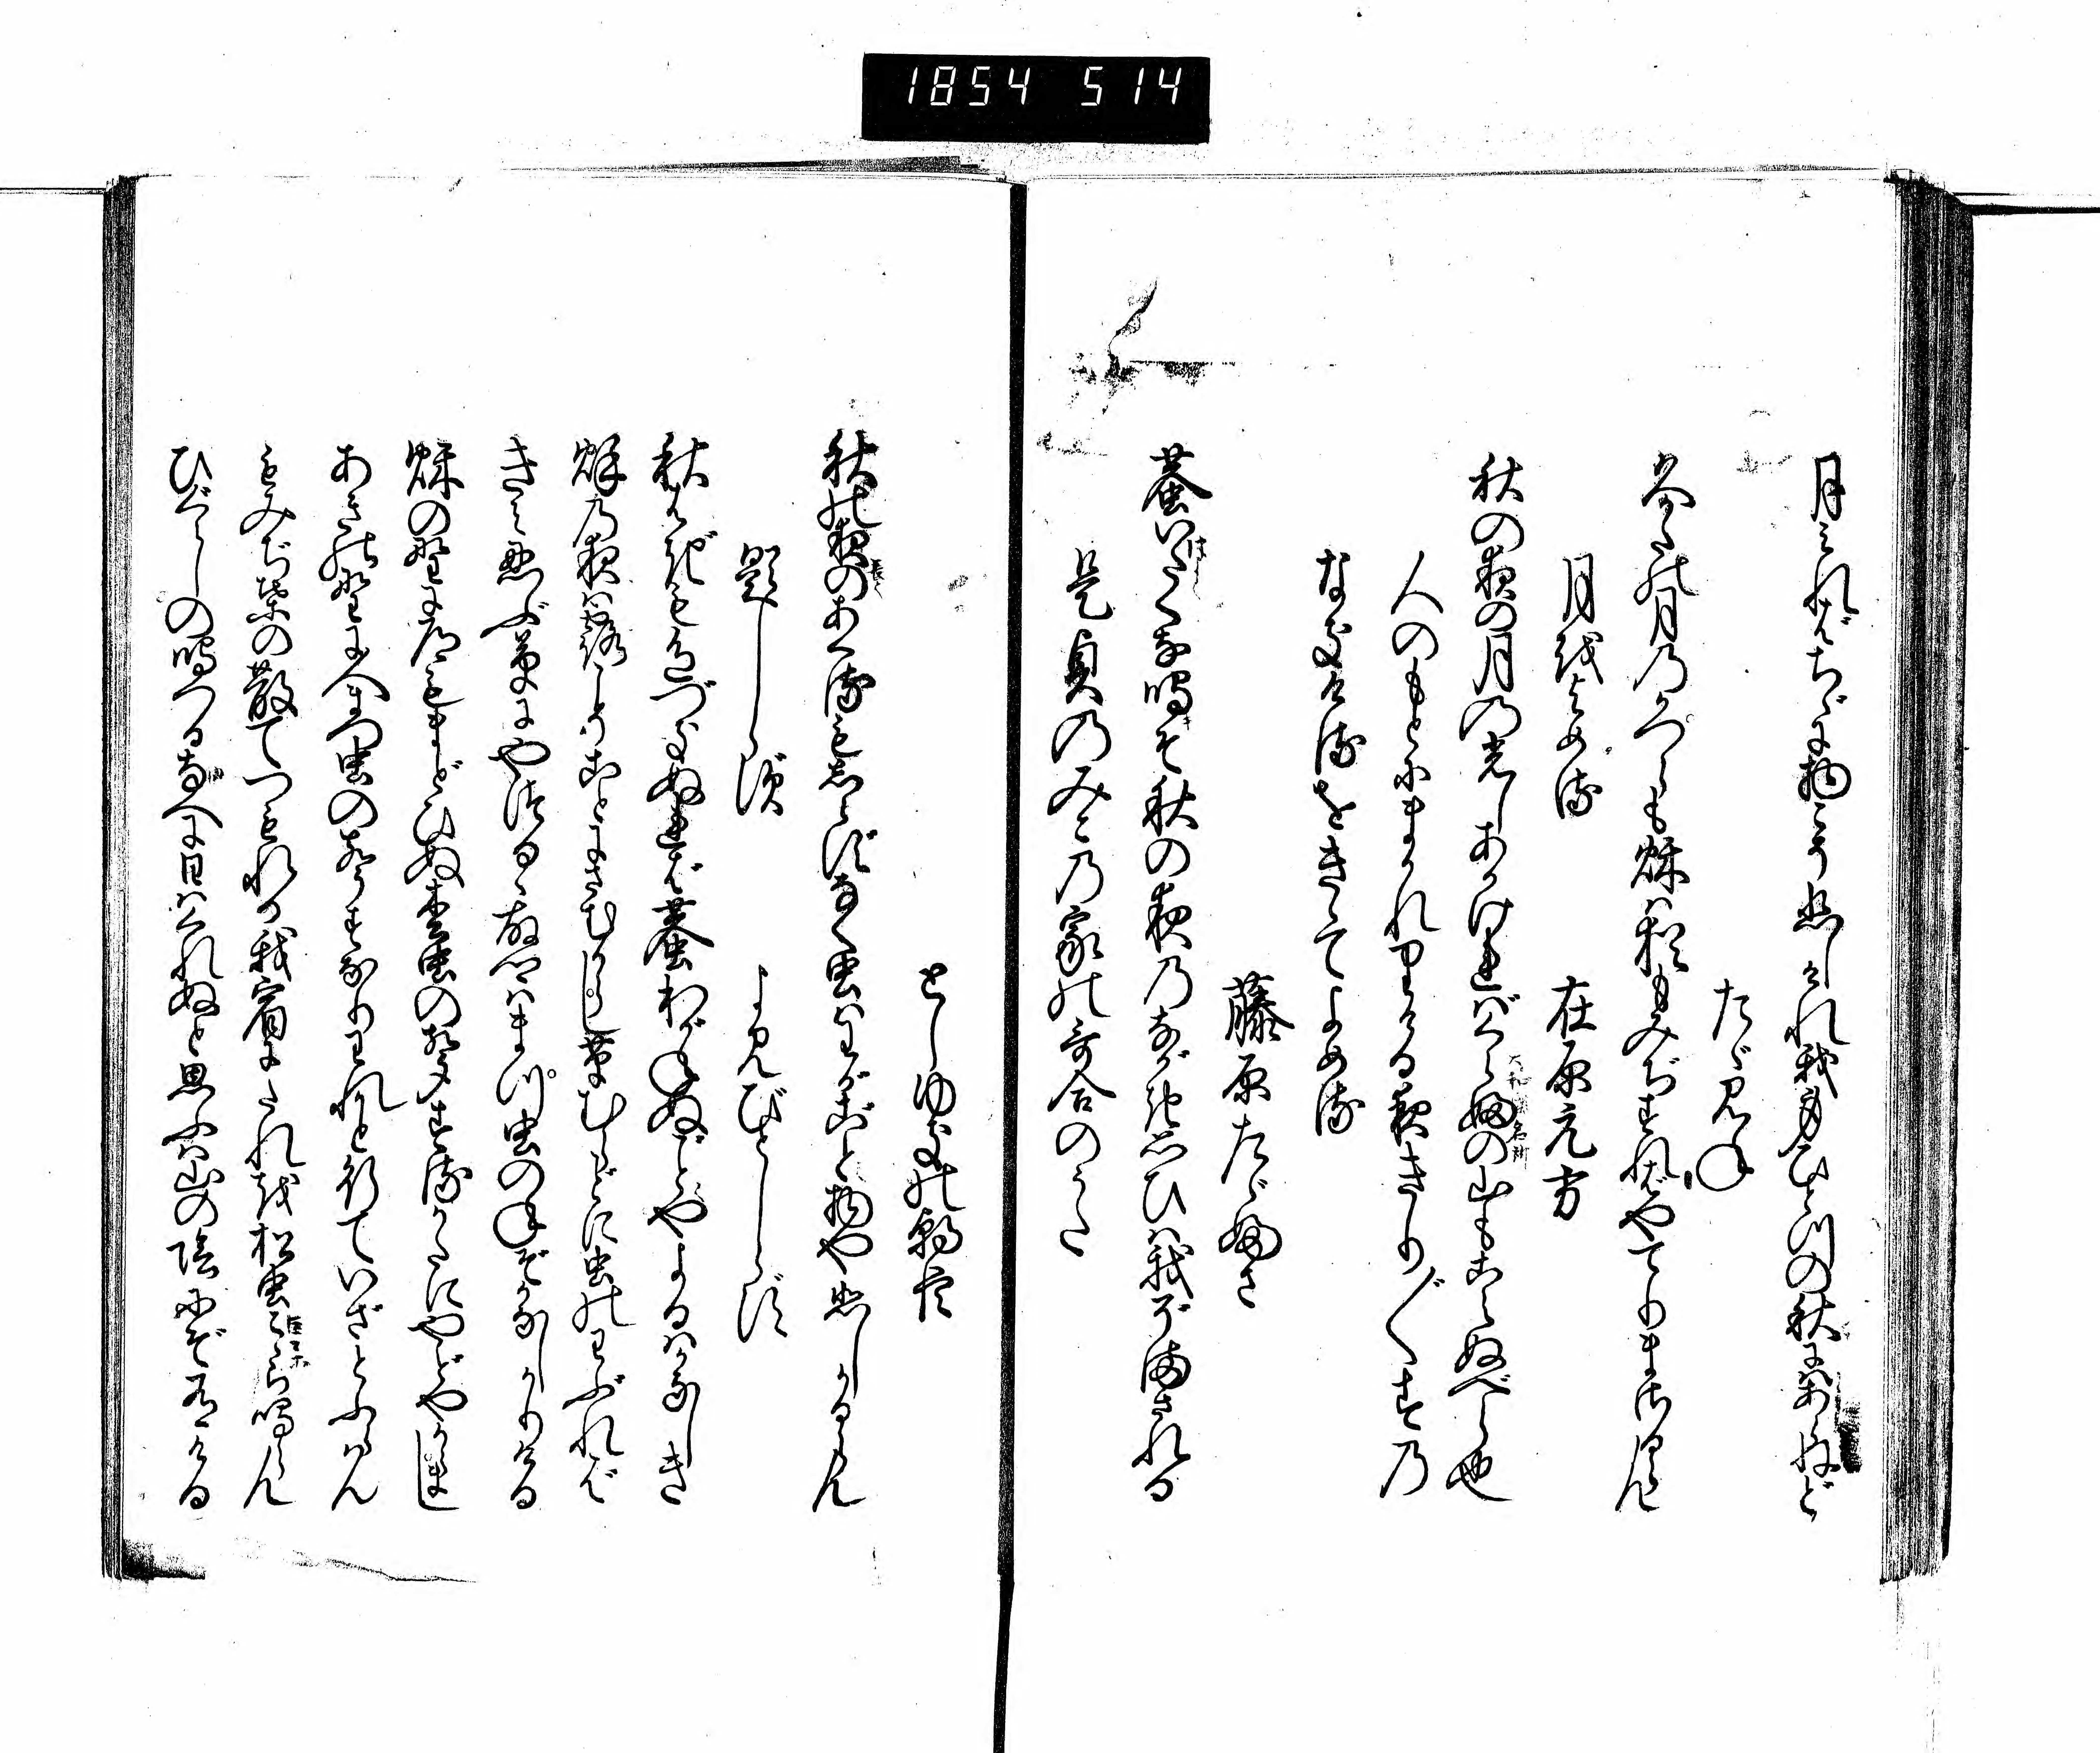 1854 514
月みればちゞに物こそ悲しけれ我身ひとつの秋にはあらねど
たゞみね
久かたの月のかつらも秋は猶もみぢすればやてりまさるらん
月をよめる
在原元方
秋の夜の月の光しあかければくらふの山もこえぬべら也
人のもとにまかれりける夜きり〴〵すの
なきけるをきゝてよめる
藤原たゞふさ
蛬いたくな鳴そ秋の夜のながき思ひは我ぞまされる
是貞のみこの家の哥合のうた
としゆきの朝臣
秋の夜のあくるもしらずなく虫はわがごと物や悲しかるらん
題しらず
よみびとしらず
秋はぎも色づきぬれば蛬わがねぬごとやよるはかなしき
秋の夜は露こそことにさむからし草むらごとに虫のわぶれば
きみ忍ぶ草にやつるゝ故里はまつ虫のねぞかなしかりける
秋の野に道もまどひぬ松虫の声する方にやどやからまし
あきの野に人まつ虫の声すなりわれかと行ていざとふらはん
もみぢ葉の散てつもれる我宿にたれを松虫こゝら鳴らん
ひぐらしの鳴つるなへに日はくれぬと思ふは山の陰にぞ有ける